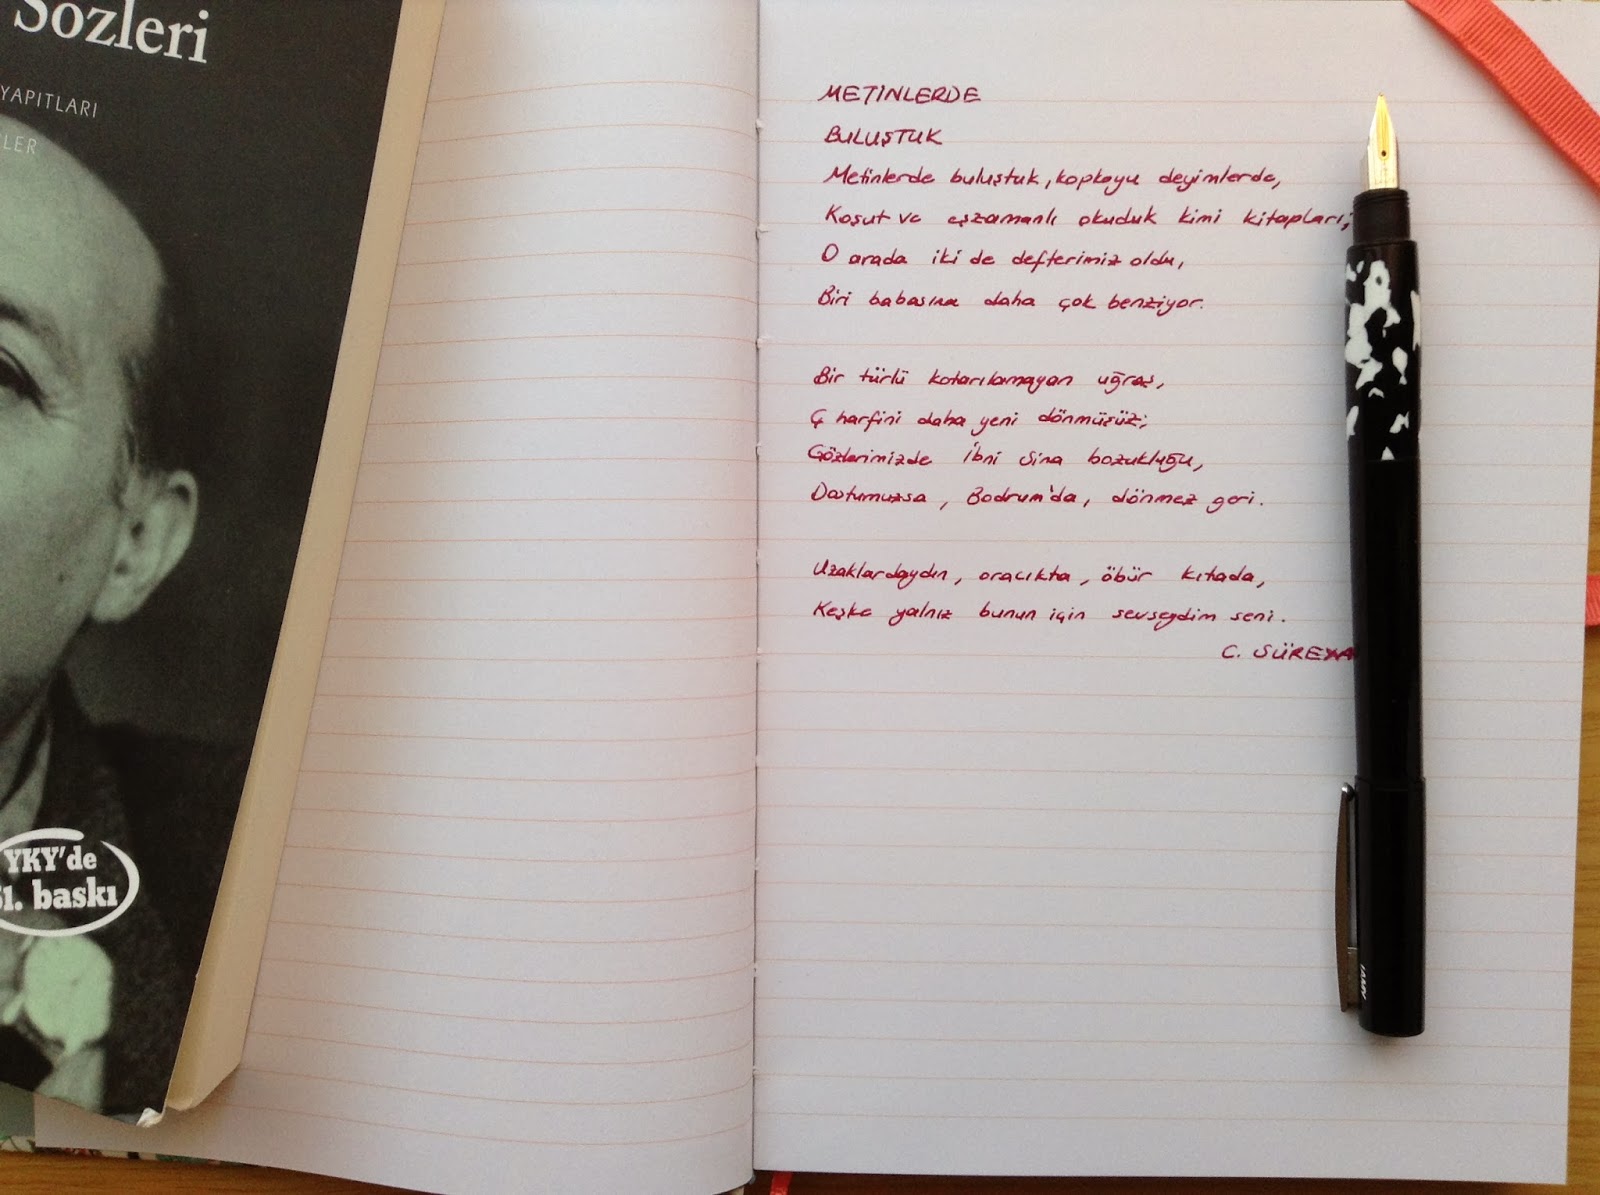 Sözleri
YAPITLARI
LER
YKY'de
51. baskı
METİNLERDE
BULUŞTUK
Metinlerde buluştuk, kopkoyu deyimlerde,
Koşut ve eşzamanlı okuduk kimi kitapları;
O arada iki de defterimiz oldu,
Biri babasına daha çok benziyor.
Bir türlü kotarılamayan uğraş,
Ç harfini daha yeni dönmüşüz;
Gözlerimizde İbni Sina bozukluğu,
Dostumuzsa, Bodrum'da, dönmez geri.
Uzaklardaydın, oracıkta, öbür kıtada,
Keşke yalnız bunun için sevseydim seni.
C. SÜREYA
LAMY